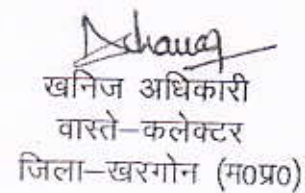 खनिज अधिकारी
वास्ते–कलेक्टर
जिला–खरगोन (म0प्र0)